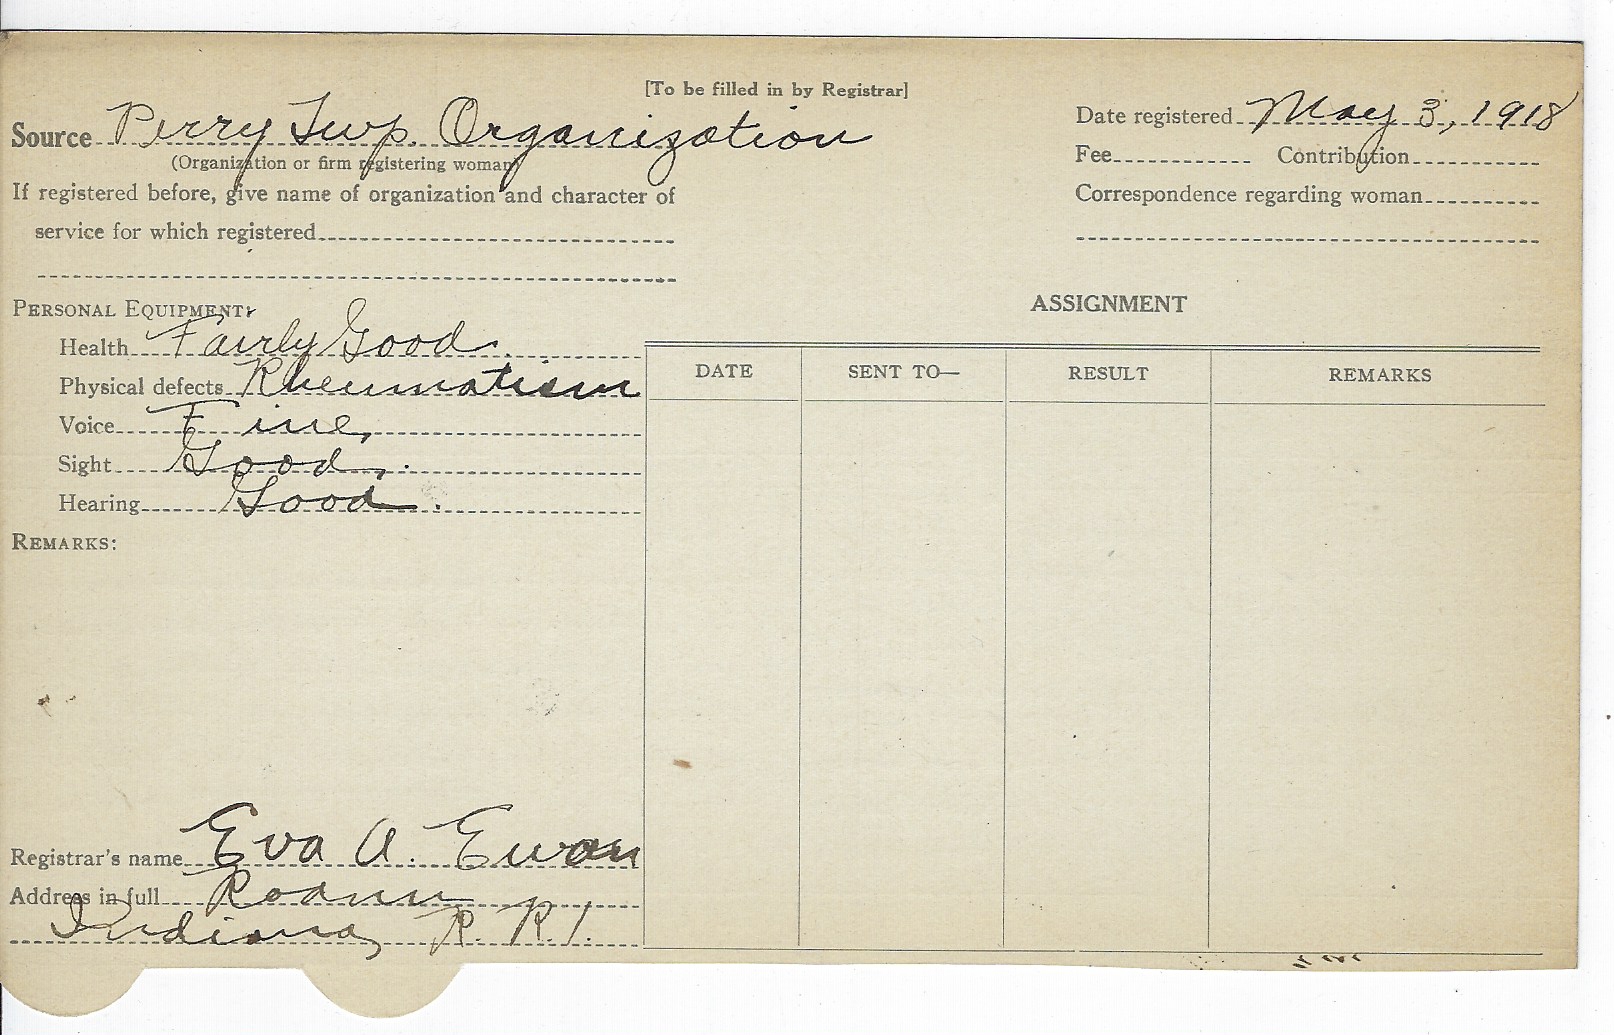 [To be filled in by Registrar]
Source Perry Twp. Organization
(Organization or firm registering woman)
If registered before, give name of organization and character of
service for which registered
Date registered May 3, 1918
Fee Contribution
Correspondence regarding woman
PERSONAL EQUIPMENT:
Health Fairly Good.
Physical defects Rheumatism
Voice Fine,
Sight Good,.
Hearing Good.
REMARKS:
ASSIGNMENT
DATE SENT TO— RESULT REMARKS
Registrar's name Eva A. Ewan
Address in full Roann
Indiana, R. R. 1.